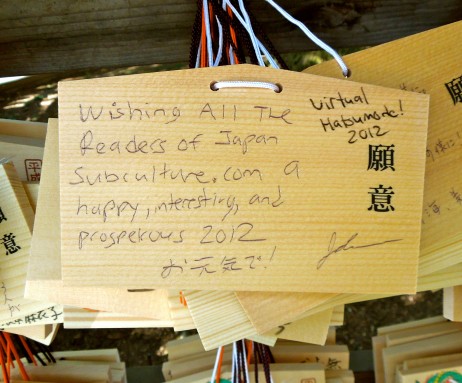 Wishing All The
Readers of Japan
Subculture.com a
happy, interesting, and
prosperous 2012
お元気で!
Virtual
Hatsumode!
2012
願意
願
麻衣子
願意